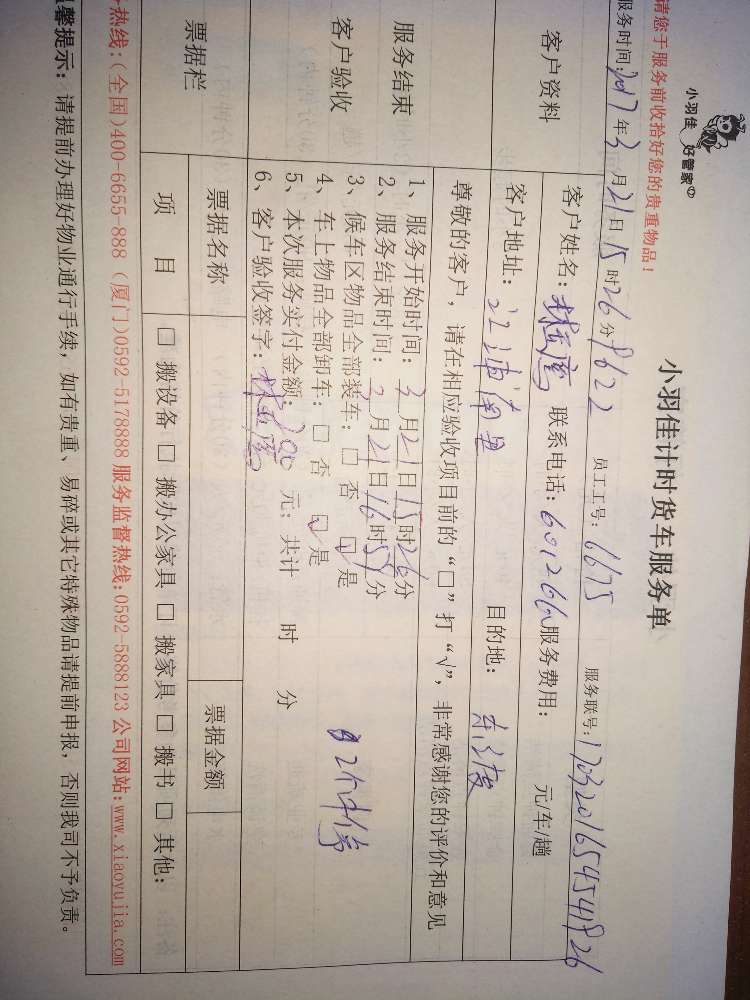 小羽佳 好管家
请您于服务前收拾好您的贵重物品！
小羽佳计时货车服务单
服务时间：2017年3月21日15时26分 员工工号：6675 服务联号：
客户资料
客户姓名： 联系电话：601266 服务费用： 元/车/趟
客户地址： 目的地：
服务结束
客户验收
尊敬的客户，请在相应验收项目前的“□”打“√”，非常感谢您的评价和意见
1、服务开始时间：3月21日15时26分
2、服务结束时间：3月21日16时59分
3、候车区物品全部装车：□ 否 ☑ 是
4、车上物品全部卸车：□ 否 ☑ 是
5、本次服务实付金额：200 元；共计 时 分
6、客户验收签字：
票据栏
票据名称 票据金额
项 目 □ 搬设备 □ 搬办公家具 □ 搬家具 □ 搬书 □ 其他：
热线：（全国）400-6655-888（厦门）0592-5178888 服务监督热线:0592-5888123 公司网站:www.xiaoyujia.com
温馨提示：请提前办理好物业通行手续，如有贵重、易碎或其它特殊物品请提前申报，否则我司不予负责。